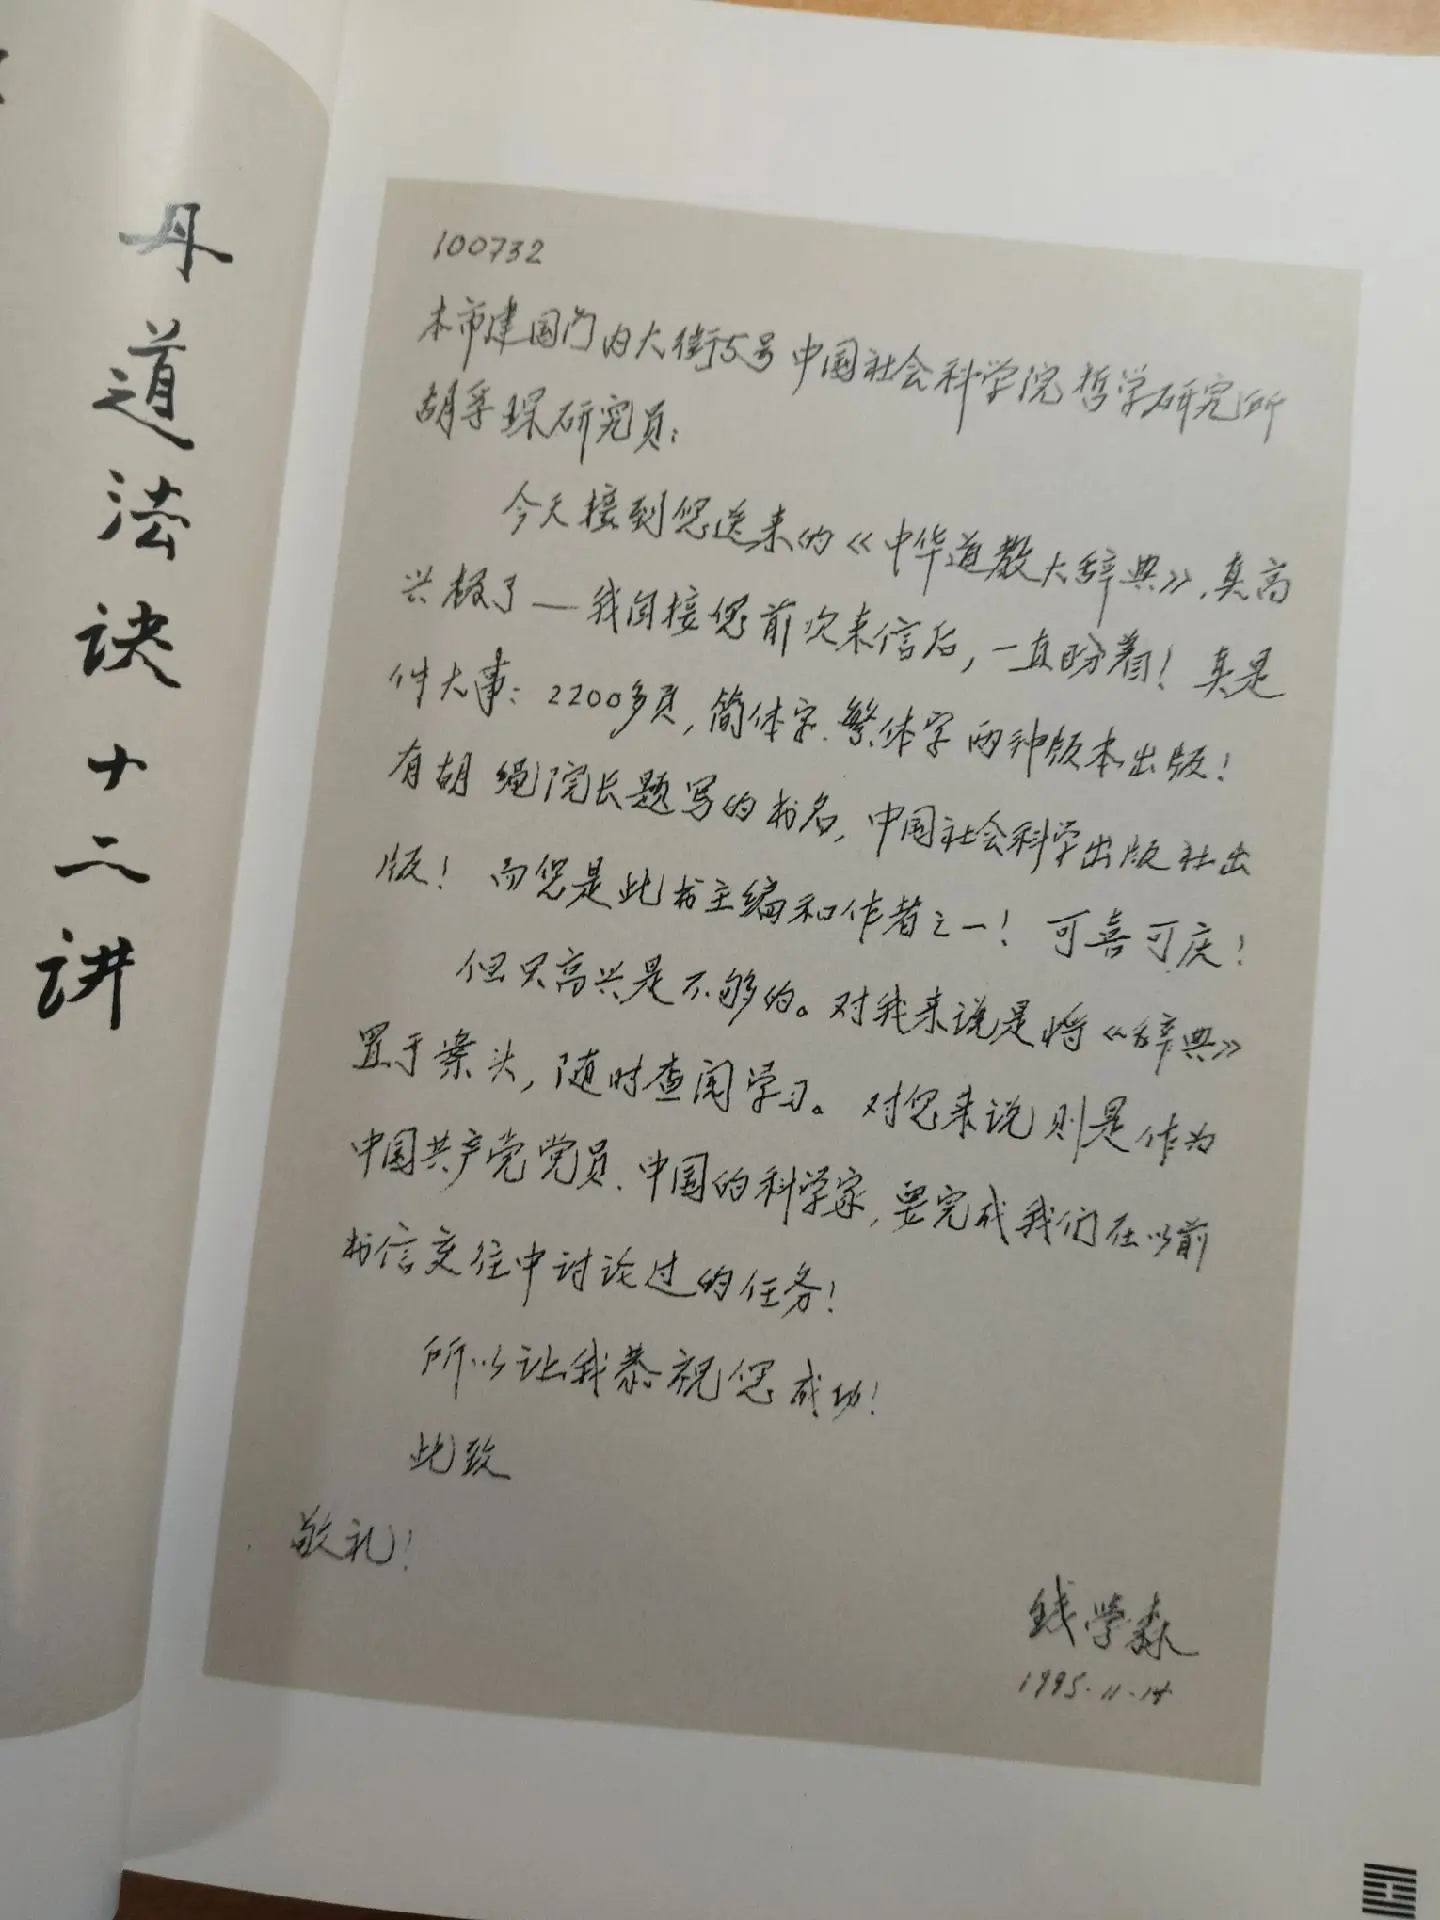 丹道法诀十二讲
100732
本市建国门内大街5号中国社会科学院哲学研究所
胡孚琛研究员:
今天接到您送来的《中华道教大辞典》,真高
兴极了——我自接您前次来信后,一直盼着!真是
件大事:2200多页,简体字、繁体字两种版本出版!
有胡绳院长题写的书名,中国社会科学出版社出
版!而您是此书主编和作者之一!可喜可庆!
但只高兴是不够的。对我来说是将《辞典》
置于案头,随时查阅学习。对您来说则是作为
中国共产党党员、中国的科学家,要完成我们在以前
书信交往中讨论过的任务!
所以让我恭祝您成功!
此致
敬礼!
钱学森
1995.11.14